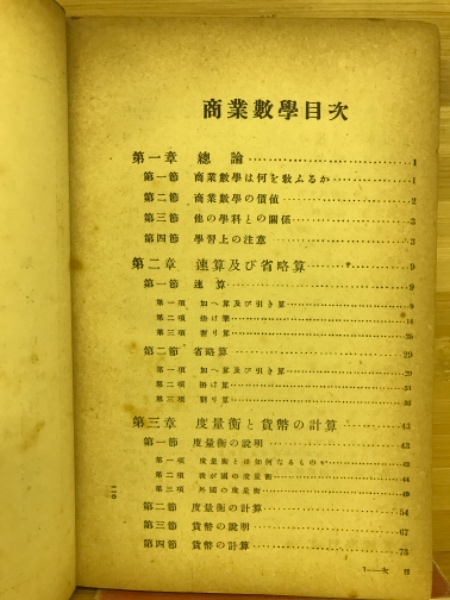 商業數學目次
第一章 總論 1
第一節 商業數學は何を敎ふるか 1
第二節 商業數學の價値 2
第三節 他の學科との關係 3
第四節 學習上の注意 3
第二章 速算及び省略算 9
第一節 速算 9
第一項 加へ算及び引き算 9
第二項 掛け算
第三項 割り算 25
第二節 省略算 29
第一項 加へ算及び引き算 29
第二項 掛け算 31
第三項 割り算
第三章 度量衡と貨幣の計算 43
第一節 度量衡の說明 43
第一項 度量衡とは如何なるものか 43
第二項 我が國の度量衡 44
第三項 外國の度量衡 49
第二節 度量衡の計算 54
第三節 貨幣の說明 67
第四節 貨幣の計算 73
1—次